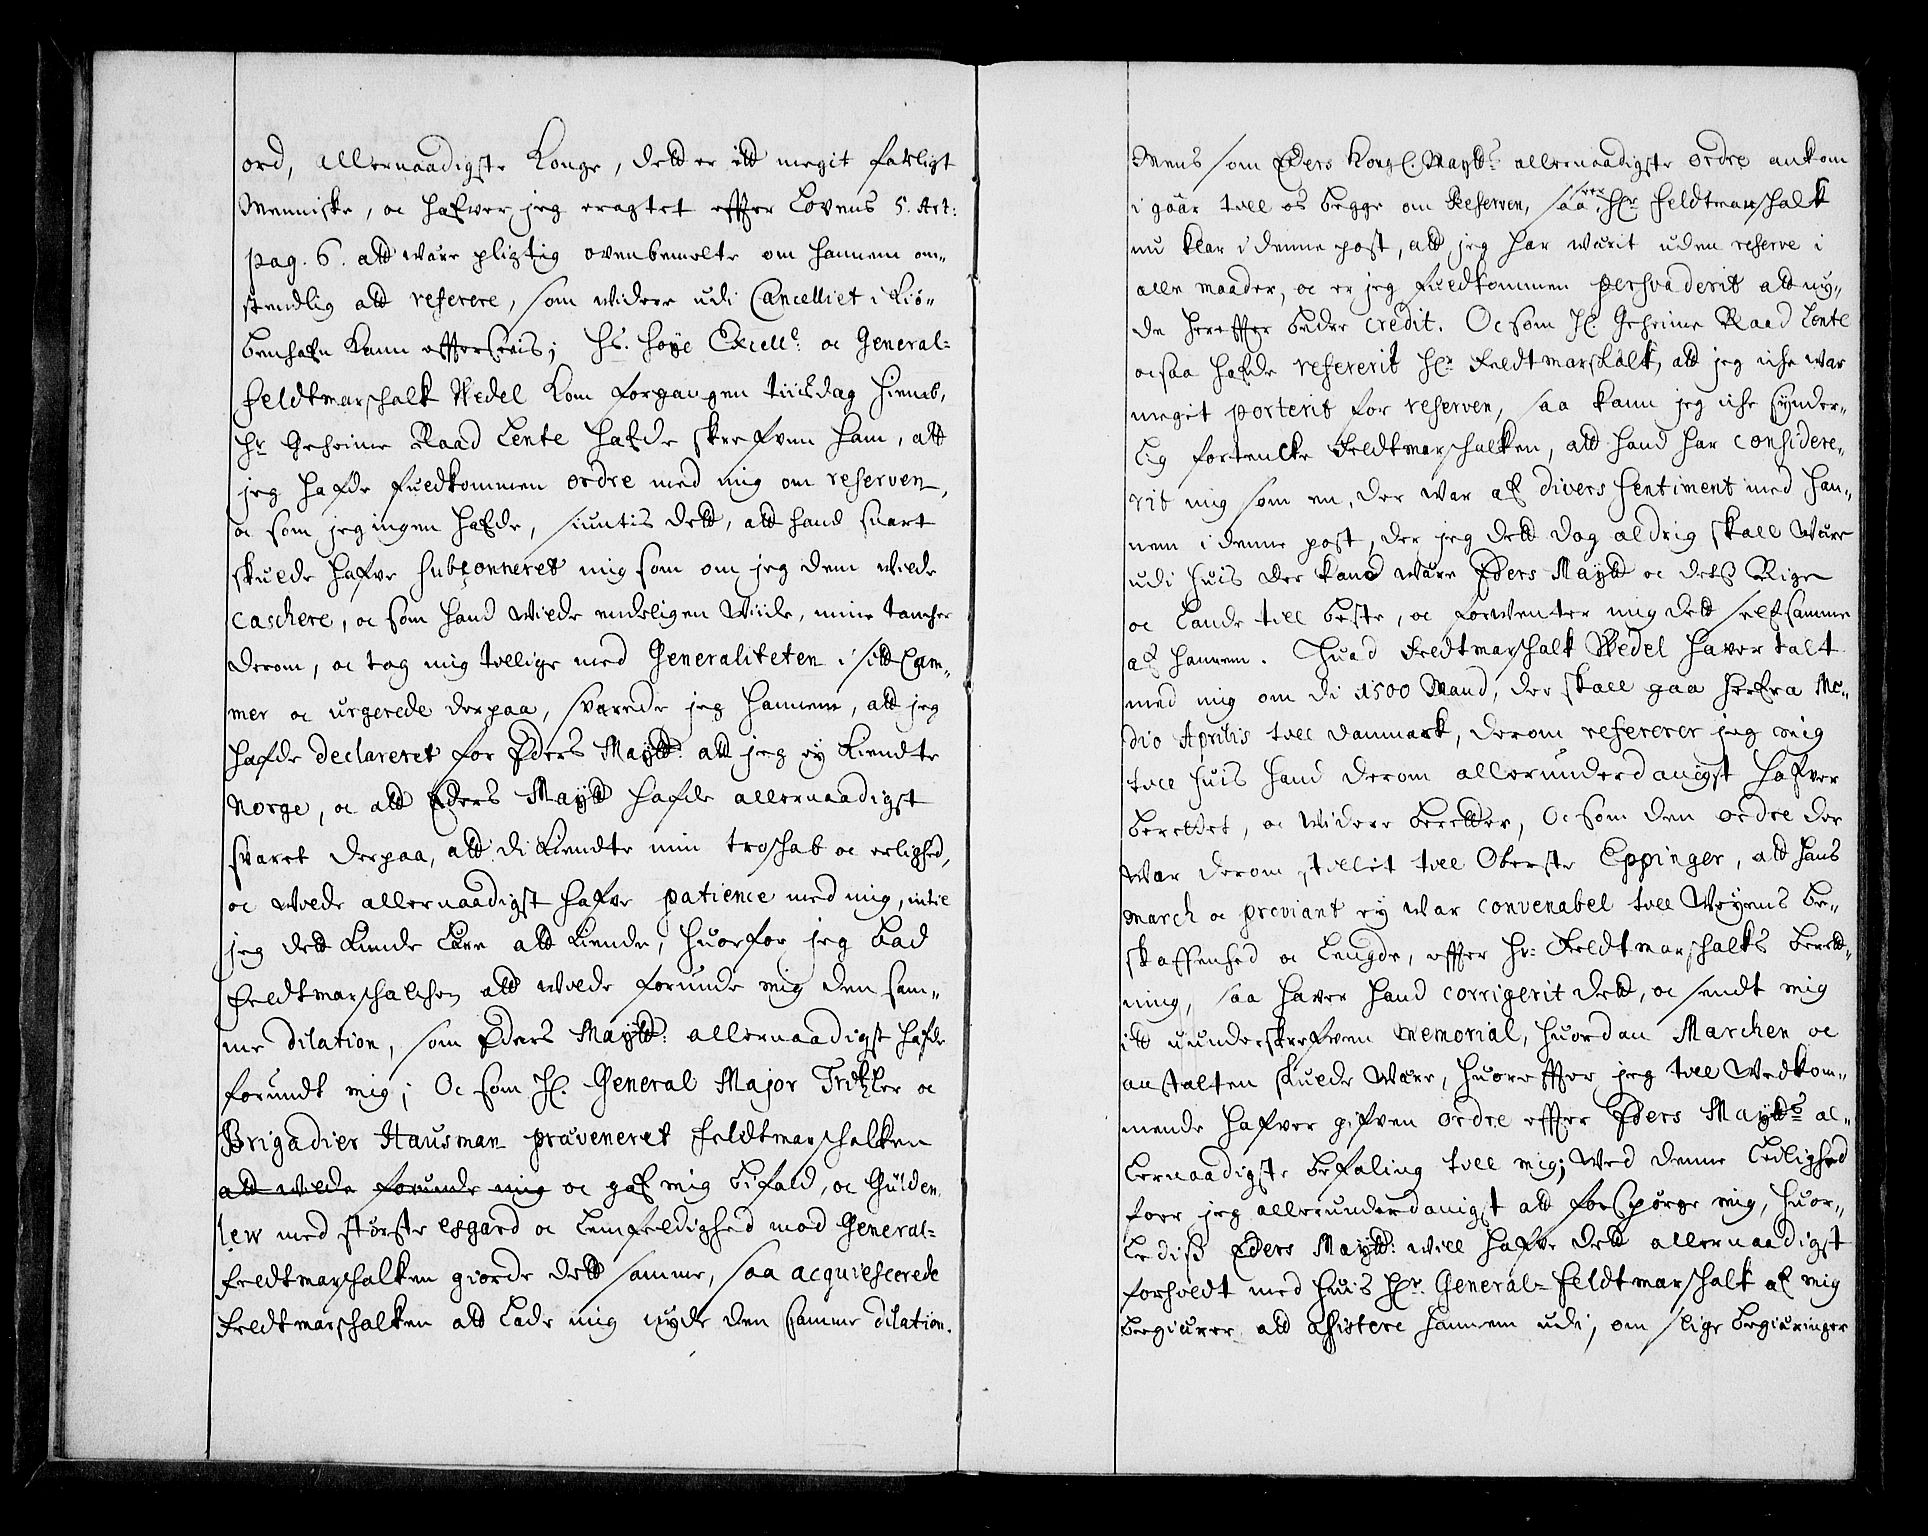 ord, allernaadigste Konge, dett er ett megit farligt
Menniske, oc hafver jeg eragtet effter Lovens 5. Art:
pag. 6. att wære pligtig ovenbemelte om hannem om-
stendlig att referere, som widere udi Cancelliet i Kiö-
benhafn kann effterseeis; Hs. höye Excell: oc General-
Feldtmarschalk Wedel kom forgangen tiisdag hiemb,
Hr Geheime Raad Lente hafde skrefven ham, att
jeg hafde fuldkommen ordre med mig om reserven,
oc som jeg ingen hafde, siuntis dett, att hand snart
skulde hafve subçonneret mig som om jeg dem wilde
caschere, oc som hand wilde endeligen wiide, mine tancher
derom, oc tog mig tillige med Generaliteten i sitt Cam-
mer oc urgerede derpaa, svarede jeg hannem, att jeg
hafde declareret for Eders Maytt: att jeg ey kiendte
Norge, oc att Eders Maytt hafde allernaadigst
svaret derpaa, att di kiendte min troskab oc erlighed,
oc wilde allernaadigst hafve patience med mig, intil
jeg dett kunde lære att kiende, huorfor jeg bad
Feldtmarschalchen att wilde forunde mig den sam-
me dilation, som Eders Maytt: allernaadigst hafde
forundt mig; Oc som H. General Major Tritzler oc
Brigadier Hausman præveneret Feldtmarschalken
att wilde forunde mig oc gaf mig bifald, oc Gülden-
lew med störste esgard oc lemfeldighed mod General-
Feldtmarschalken giorde dett samme, saa acquiescerede
Feldtmarschalken att lade mig nyde den samme dilation.
Mens som Eders Kongl. Maytts allernaadigste ordre ankom
i gaar till os begge om Reserven, saa er Hr Feldtmarschalk
nu klar i denne post, att jeg har wærit uden reserve i
alle maader, oc er jeg fuldkommen persvaderit att ny-
de hereffter bedre credit. Oc som H. Geheime Raad Lente
ocsaa hafde refererit Hr. Feldtmarskalk, att jeg iche war
megit porterit for reserven, saa kann jeg iche synder-
lig fortencke Feldtmarschalken, att hand har considere-
rit mig som en, der war af divers sentiment med han-
nem i denne post, der jeg dett dog aldrig skall wære
udi huis der kand wære Eders Maytt oc dets Rige
oc Lande till beste, oc forwenter mig dett selfsamme
af hannem. Huad Feldtmarschalk Wedel haver talt
med mig om di 1500 Mand, der skall gaa herfra Me-
dio Aprilis till Danmark, derom refererer jeg mig
till huis hand derom allerunderdanigst hafver
berettet, oc widere beretter, Oc som den ordre der
war derom stillit till Oberste Eppinger, att hans
march oc proviant ey war convenabel till Weyens be-
skaffenhed oc lengde, effter Hr. Feldtmarschalks berett-
ning, saa haver hand corrigerit dett, oc sendt mig
itt uunderskrefven memorial, huordan Marchen oc
anstalten skulde wære, huoreffter jeg till wedkom-
mende hafver gifven ordre effter Eders Maytts al-
lernaadigste befaling till mig; Wed denne leilighed
foer jeg allerunderdanigst att forspörge mig, huor-
ledis Eders Maytt: will hafve dett allernaadigst
forholdt med huis Hr. General-Feldtmarschalk af mig
begiærer att assistere hannem udi, om slige begiæringer